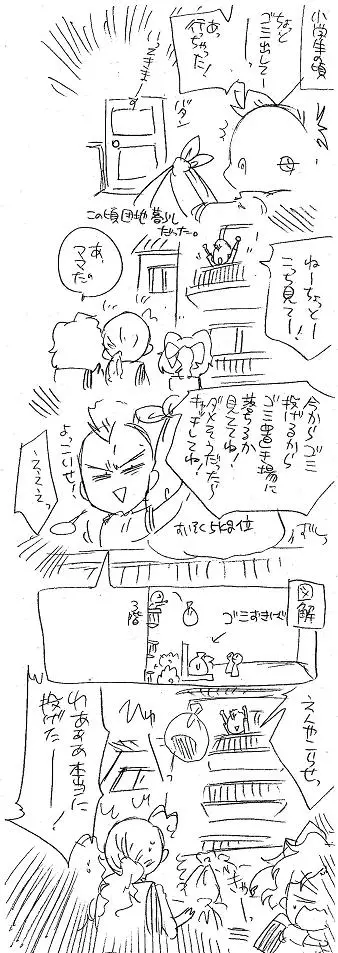 小学生の頃
ちょっと
ゴミ出してー
あっ
行っちゃった!
いってきまーす
バターン
この頃団地暮らし
だった。
ねーちょっとー
こっち見てー!
あ、
ママだ。
今からゴミ
投げるから
ゴミ置き場に
落ちるか
見ててね!
ダメそうだったら
キャッチしてね!
よっこいせ!
えええっ
図解
ゴミおきば
3階
えんやこらせっ
ひゅー
わあああ本当に
投げた!
きゃー